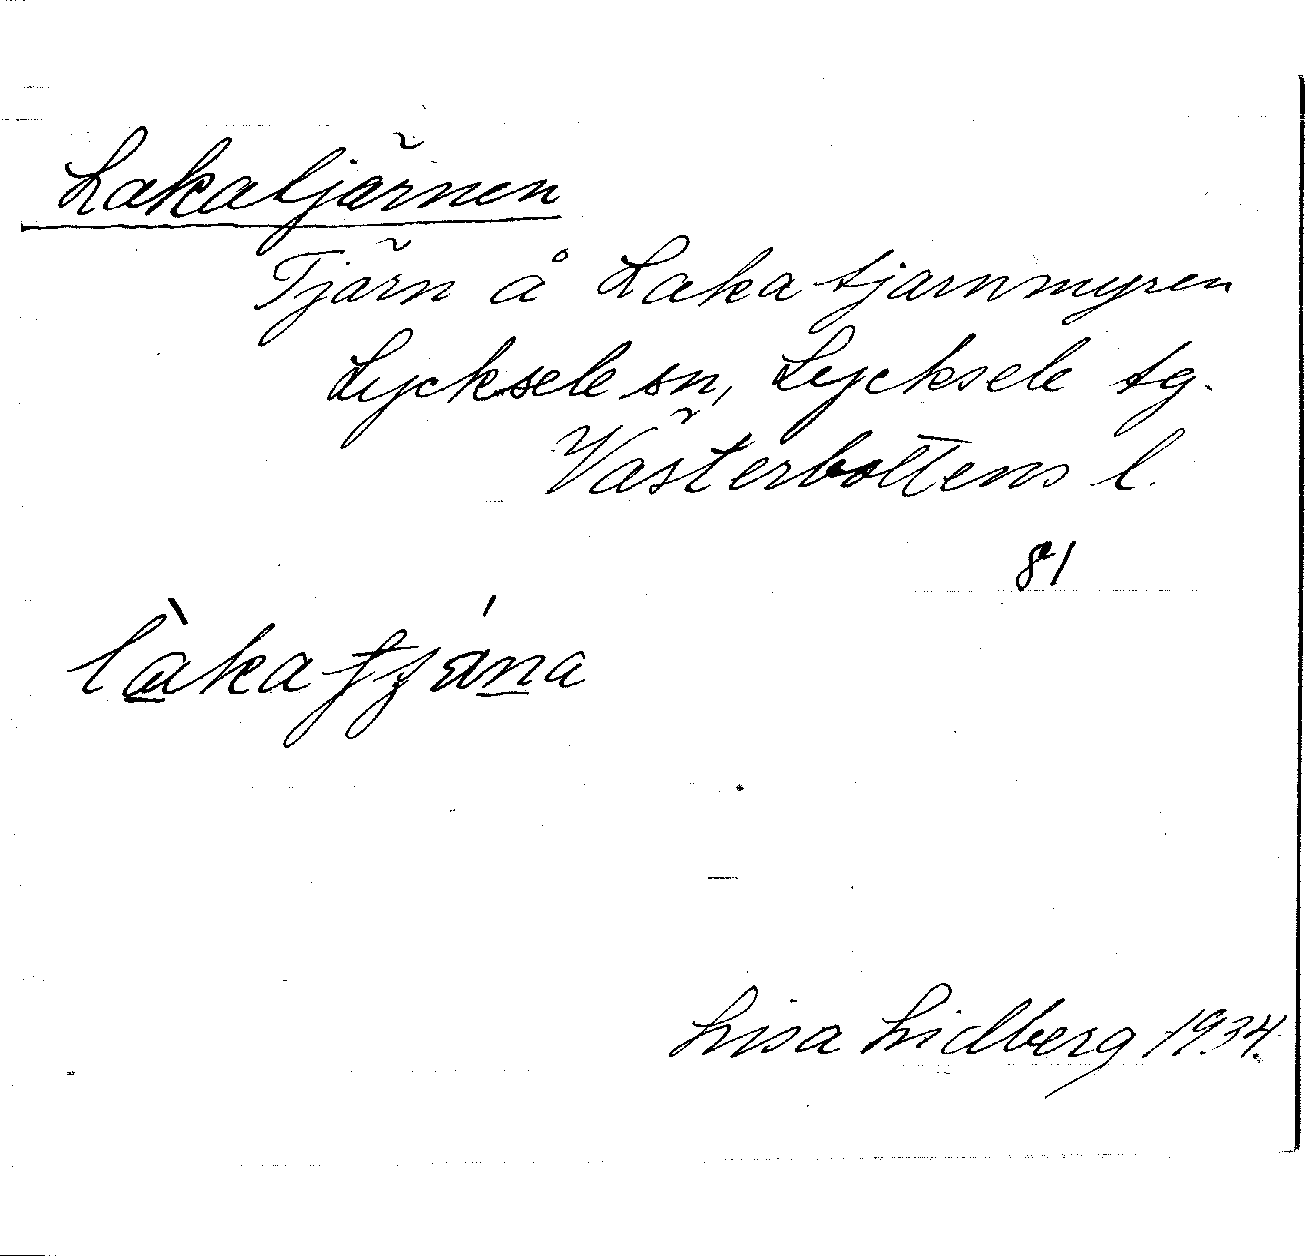 Lakatjärnen
Tjärn å Lakatjarnmyren
Lycksele sn, Lycksele tg.
Västerbottens l.
81
làkatjána
Lisa Lidberg 1934.